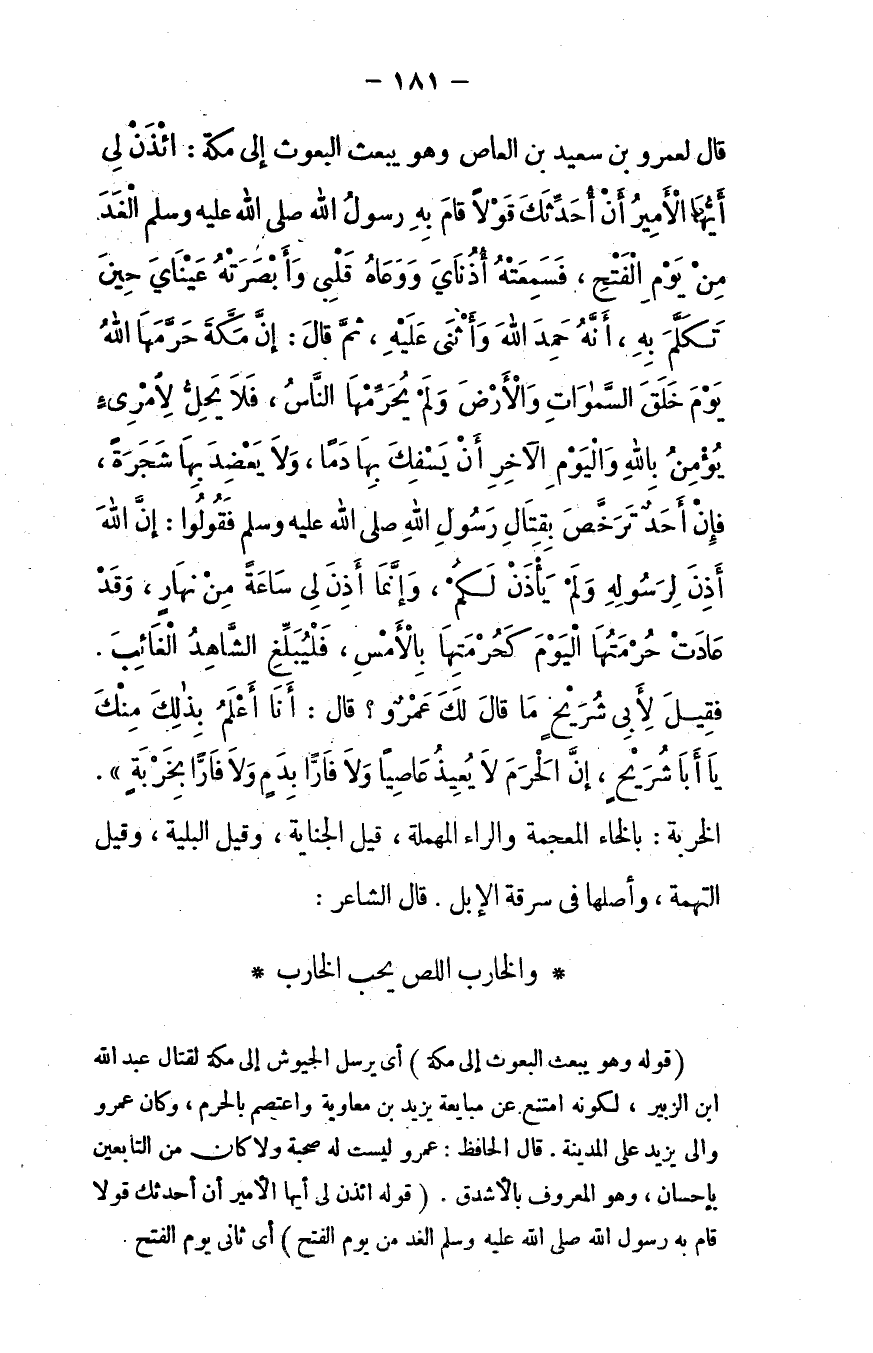 – ١٨١ –
قال لعمرو بن سعيد بن العاص وهو يبعث البعوث إلى مكة : ائْذَنْ لِى
أَيُّهَا الْأَمِيرُ أَنْ أُحَدِّثَكَ قَوْلاً قَامَ بِهِ رسولُ الله صلى الله عليه وسلم الْغَدَ
مِنْ يَوْمِ الْفَتْحِ ، فَسَمِعَتْهُ أُذُنَاىَ وَوَعَاهُ قَلْبِى وَأَبْصَرَتْهُ عَيْنَاىَ حِينَ
تَكَلَّمَ بِهِ ، أَنَّهُ حَمِدَ اللهَ وَأَثْنَى عَلَيْهِ ، ثمَّ قالَ : إِنَّ مَكَّةَ حَرَّمَهَا اللهُ
يَوْمَ خَلَقَ السَّمٰوَاتِ وَالْأَرْضَ وَلَمْ يُحَرِّمْهَا النَّاسُ ، فَلَا يَحِلُّ لِأَمْرِىءٍ
يُؤْمِنُ بِاللهِ وَالْيَوْمِ الآخِرِ أَنْ يَسْفِكَ بِهَا دَمًا ، وَلاَ يَعْضِدَ بِهَا شَجَرَةً ،
فإِنْ أَحَدٌ تَرَخَّصَ بِقِتَالِ رَسُولِ اللهِ صلى الله عليه وسلم فَقُولُوا : إِنَّ اللهَ
أَذِنَ لِرَسُولِهِ وَلَمْ يَأْذَنْ لَكُمْ ، وَإِنَّمَا أَذِنَ لِى سَاعَةً مِنْ نَهَارٍ ، وَقَدْ
عَادَتْ حُرْمَتُهَا الْيَوْمَ كَحُرْمَتِهَا بِالْأَمْسِ ، فَلْيُبَلِّغِ الشَّاهِدُ الْغَائِبَ .
فَقِيلَ لِأَبِى شُرَيْحٍ مَا قالَ لَكَ عَمْرٌو ؟ قال : أَنَا أَعْلَمُ بِذٰلِكَ مِنْكَ
يَا أَبَا شُرَيْحٍ ، إِنَّ الْحَرَمَ لاَ يُعِيذُ عَاصِيًا وَلاَ فَارًّا بِدَمٍ وَلاَ فَارًّا بِخَرْبَةٍ » .
الخربة : بالخاء المعجمة والراء المهملة ، قيل الجناية ، وقيل البلية ، وقيل
التهمة ، وأصلها فى سرقة الإبل . قال الشاعر :
* والخارب اللص يحب الخاربا *
( قوله وهو يبعث البعوث إلى مكة ) أى يرسل الجيوش إلى مكة لقتال عبد الله
ابن الزبير ، لكونه امتنع عن مبايعة يزيد بن معاوية واعتصم بالحرم ، وكان عمرو
والى يزيد على المدينة . قال الحافظ : عمرو ليست له صحبة ولا كان من التابعين
بإحسان ، وهو المعروف بالأشدق . ( قوله ائذن لى أيها الأمير أن أحدثك قولا
قام به رسول الله صلى الله عليه وسلم الغد من يوم الفتح ) أى ثانى يوم الفتح .